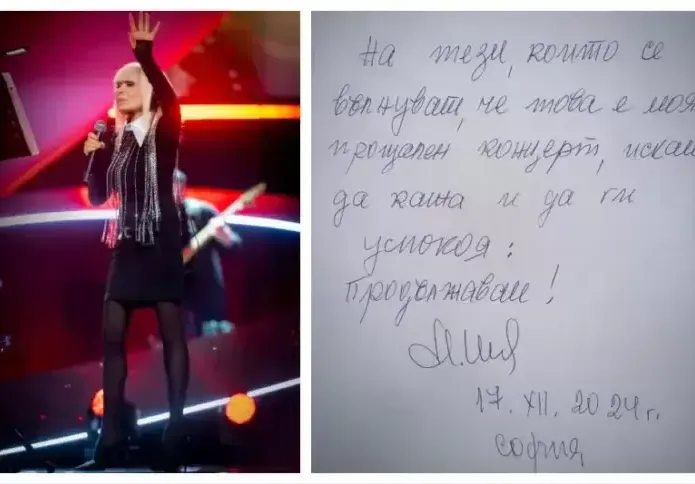 На тези, които се
вълнуват, че това е моя
прощален концерт, искам
да кажа и да ги
успокоя:
Продължавам!
17. XII. 2024 г.
София